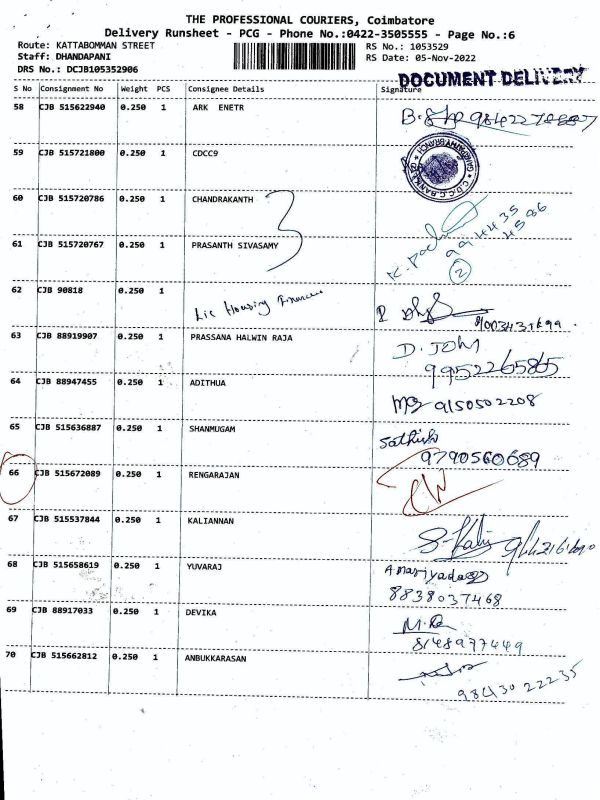 THE PROFESSIONAL COURIERS, Coimbatore
Delivery Runsheet - PCG - Phone No.:0422-3505555 - Page No.:6
Route: KATTABOMMAN STREET RS No.: 1053529
Staff: DHANDAPANI RS Date: 05-Nov-2022
DRS No.: DCJB105352906
DOCUMENT DELIVERY
S No Consignment No Weight PCS Consignee Details Signature
58 CJB 515622940 0.250 1 ARK ENETR
59 CJB 515721800 0.250 1 CDCC9
60 CJB 515720786 0.250 1 CHANDRAKANTH
61 CJB 515720767 0.250 1 PRASANTH SIVASAMY
2
62 CJB 90818 0.250 1 Lic Housing Finance
63 CJB 88919907 0.250 1 PRASSANA HALWIN RAJA D. JOHN
9952265865
64 CJB 88947455 0.250 1 ADITHUA 9150502208
65 CJB 515636887 0.250 1 SHANMUGAM Sathish
9790560689
66 CJB 515672089 0.250 1 RENGARAJAN
67 CJB 515537844 0.250 1 KALIANNAN
68 CJB 515658619 0.250 1 YUVARAJ
8838037468
69 CJB 88917033 0.250 1 DEVIKA
8148977449
70 CJB 515662812 0.250 1 ANBUKKARASAN
9843022235